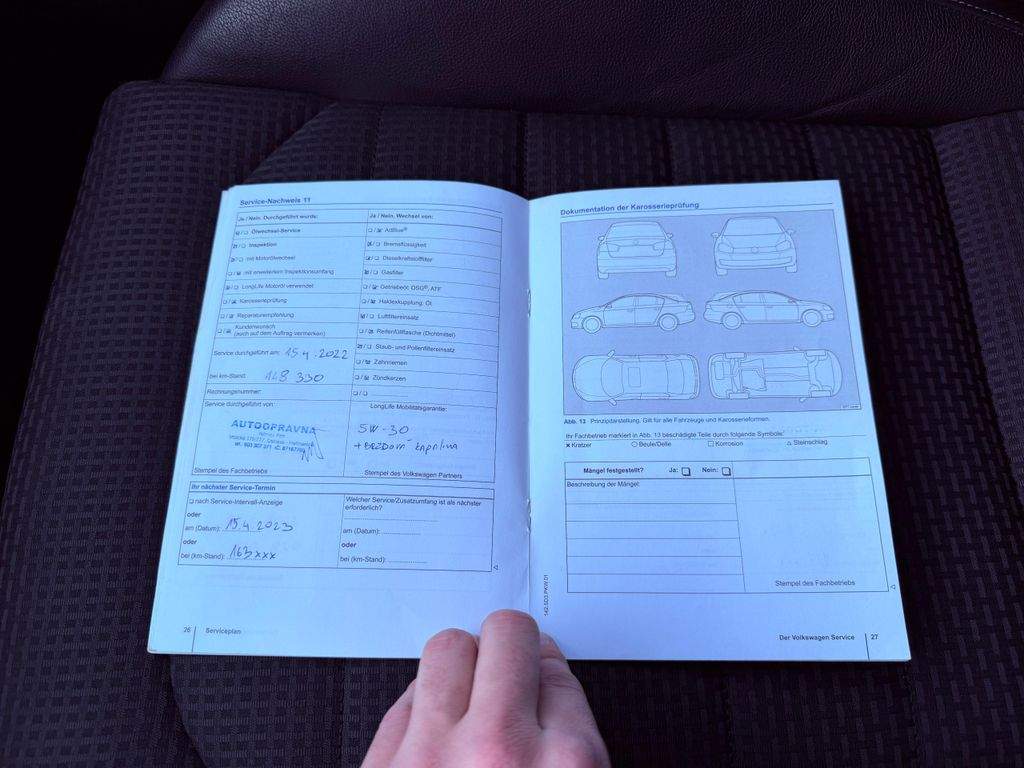 Service-Nachweis 11
Ja / Nein. Durchgeführt wurde:
Ölwechsel-Service
Inspektion
mit Motorölwechsel
mit erweitertem Inspektionsumfang
LongLife Motoröl verwendet
Karosserieprüfung
Reparaturempfehlung
Kundenwunsch
(auch auf dem Auftrag vermerken)
Service durchgeführt am: 15.4.2022
bei km-Stand: 148 330
Rechnungsnummer:
Service durchgeführt von:
AUTOOPRAVNA
Stempel des Fachbetriebs
Ja / Nein. Wechsel von:
AdBlue®
Bremsflüssigkeit
Dieselkraftstofffilter
Gasfilter
Getriebeöl: DSG®, ATF
Haldexkupplung: Öl
Luftfiltereinsatz
Reifenfüllflasche (Dichtmittel)
Staub- und Pollenfiltereinsatz
Zahnriemen
Zündkerzen
LongLife Mobilitätsgarantie:
5W-30
Stempel des Volkswagen Partners
Ihr nächster Service-Termin
nach Service-Intervall-Anzeige
oder
am (Datum): 15.4.2023
oder
bei (km-Stand): 163xxx
Welcher Service/Zusatzumfang ist als nächster
erforderlich?
am (Datum):
oder
bei (km-Stand):
26 Serviceplan
Dokumentation der Karosserieprüfung
Abb. 13 Prinzipdarstellung. Gilt für alle Fahrzeuge und Karosserieformen.
Ihr Fachbetrieb markiert in Abb. 13 beschädigte Teile durch folgende Symbole:
Kratzer Beule/Delle Korrosion Steinschlag
Mängel festgestellt? Ja: Nein:
Beschreibung der Mängel:
Stempel des Fachbetriebs
Der Volkswagen Service 27